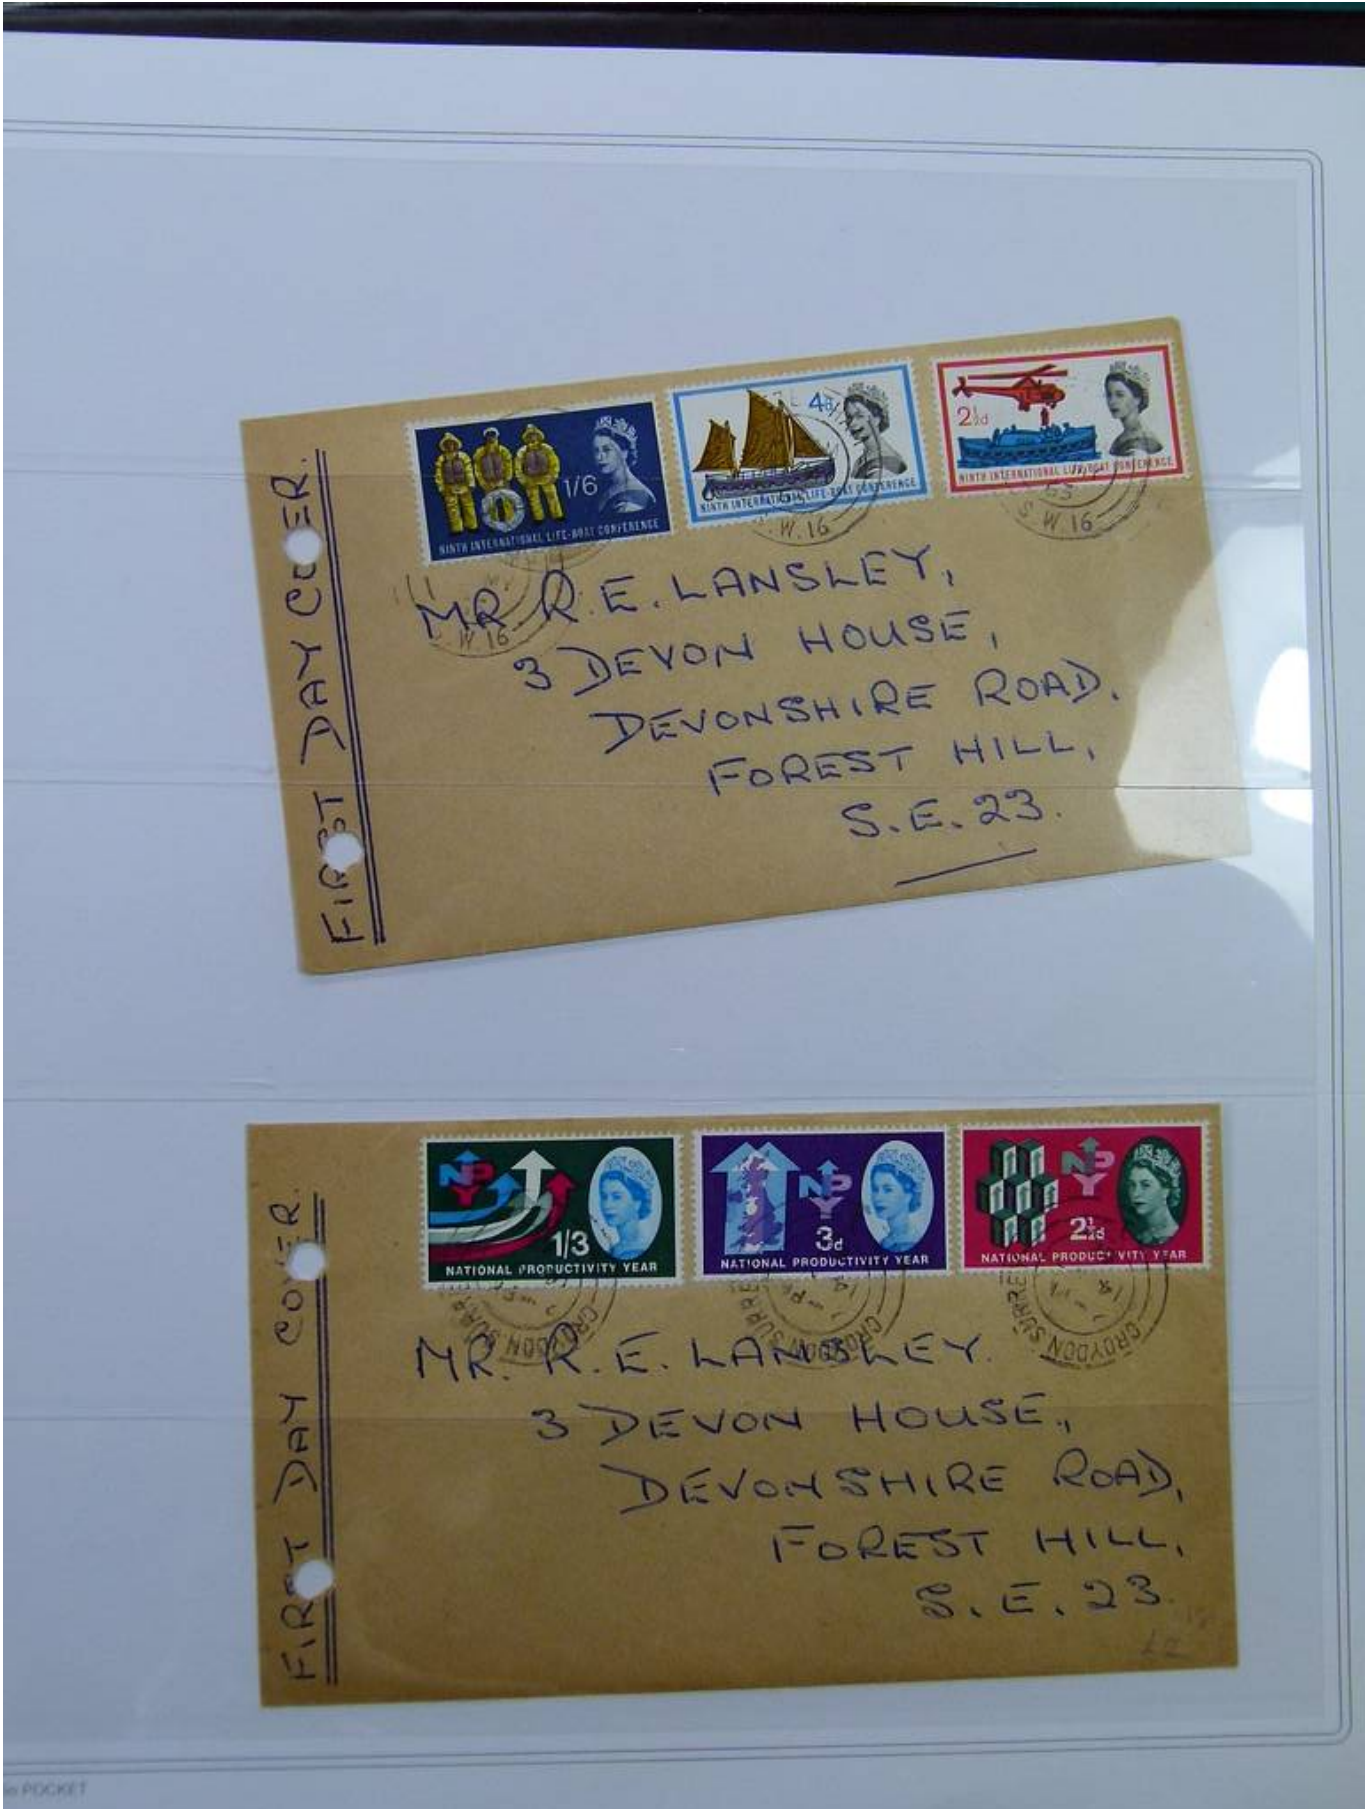 FIRST DAY COVER.
1/6
NINTH INTERNATIONAL LIFE-BOAT CONFERENCE
4d
NINTH INTERNATIONAL LIFE-BOAT CONFERENCE
2½d
NINTH INTERNATIONAL LIFE-BOAT CONFERENCE
W.16
S.W.16
W 16
63
MR R.E. LANSLEY,
3 DEVON HOUSE,
DEVONSHIRE ROAD.
FOREST HILL,
S.E. 23.
FIRST DAY COVER.
NPY
1/3
NATIONAL PRODUCTIVITY YEAR
NPY
3d
NATIONAL PRODUCTIVITY YEAR
NPY
2½d
NATIONAL PRODUCTIVITY YEAR
CROYDON SURRE
CROYDON SURRE
CROYDON SURRE
MR. R.E. LANSLEY.
3 DEVON HOUSE,
DEVONSHIRE ROAD,
FOREST HILL,
S.E. 23.
POCKET